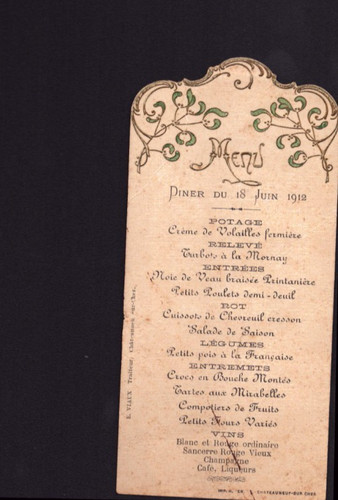 Menu
Diner du 18 Juin 1912
POTAGE
Crème de Volailles fermière
RELEVÉ
Turbots à la Mornay
ENTRÉES
Noix de Veau braisée Printanière
Petits Poulets demi-deuil
ROT
Cuissots de Chevreuil cresson
Salade de Saison
LÉGUMES
Petits pois à la Française
ENTREMETS
Crocs en Bouche Montés
Tartes aux Mirabelles
Compotiers de Fruits
Petits Fours Variés
VINS
Blanc et Rouge ordinaire
Sancerre Rouge Vieux
Champagne
Café, Liqueurs
Traiteur, Châteauneuf-sur-Cher.
CHATEAUNEUF-SUR-CHER